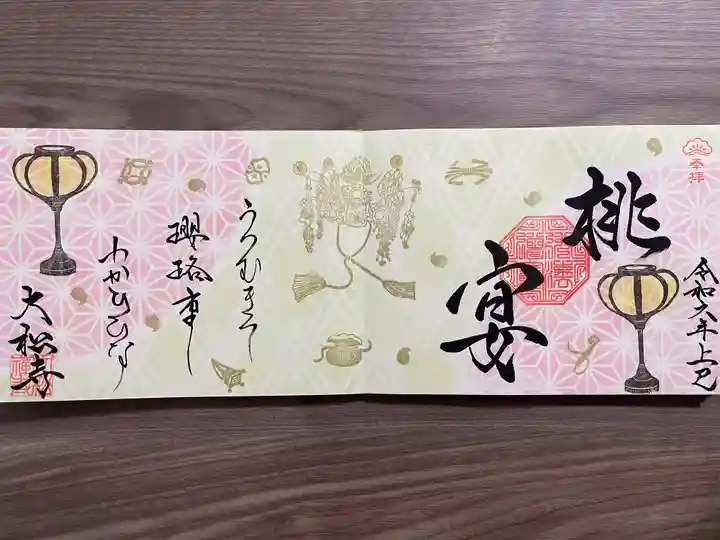 奉拝
令和六年上巳
桃
宴
うつむきて
瓔珞重し
わがひひな
大松寺